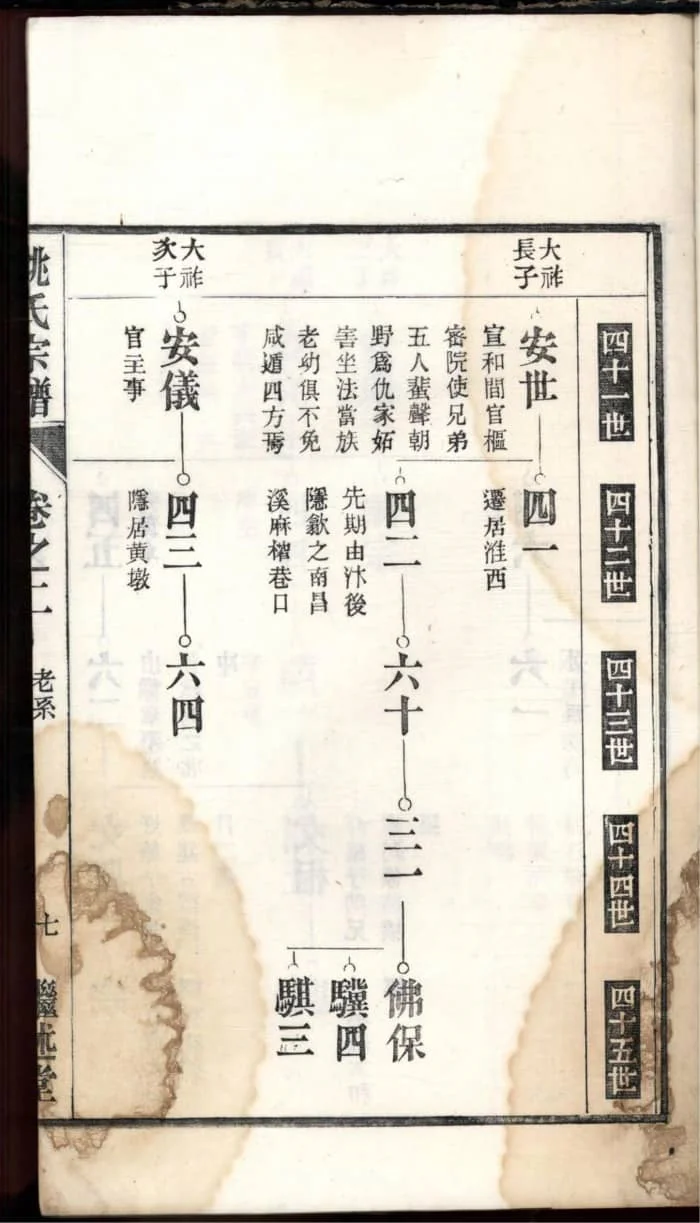 四十一世
四十二世
四十三世
四十四世
四十五世
大祚
長子
安世
宣和間官樞
密院使兄弟
五人蜚聲朝
野爲仇家妬
害坐法當族
老幼俱不免
咸遁四方焉
四一
遷居淮西
四二
先期由汴後
隱歙之南昌
溪麻榨巷口
六十
三一
佛保
驥四
騏三
大祚
次子
安儀
官主事
四三
隱居黄墩
六四
姚氏宗譜
卷之二
老系
七
繼述堂